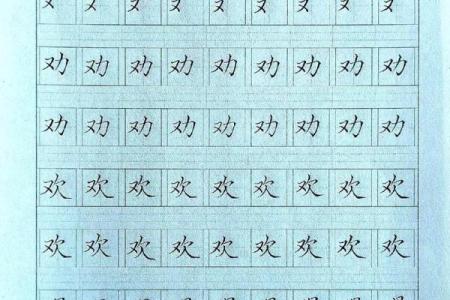 劝劝劝劝劝劝劝劝劝
劝劝劝劝劝劝劝劝劝
欢欢欢欢欢欢欢欢欢
欢欢欢欢欢欢欢欢欢